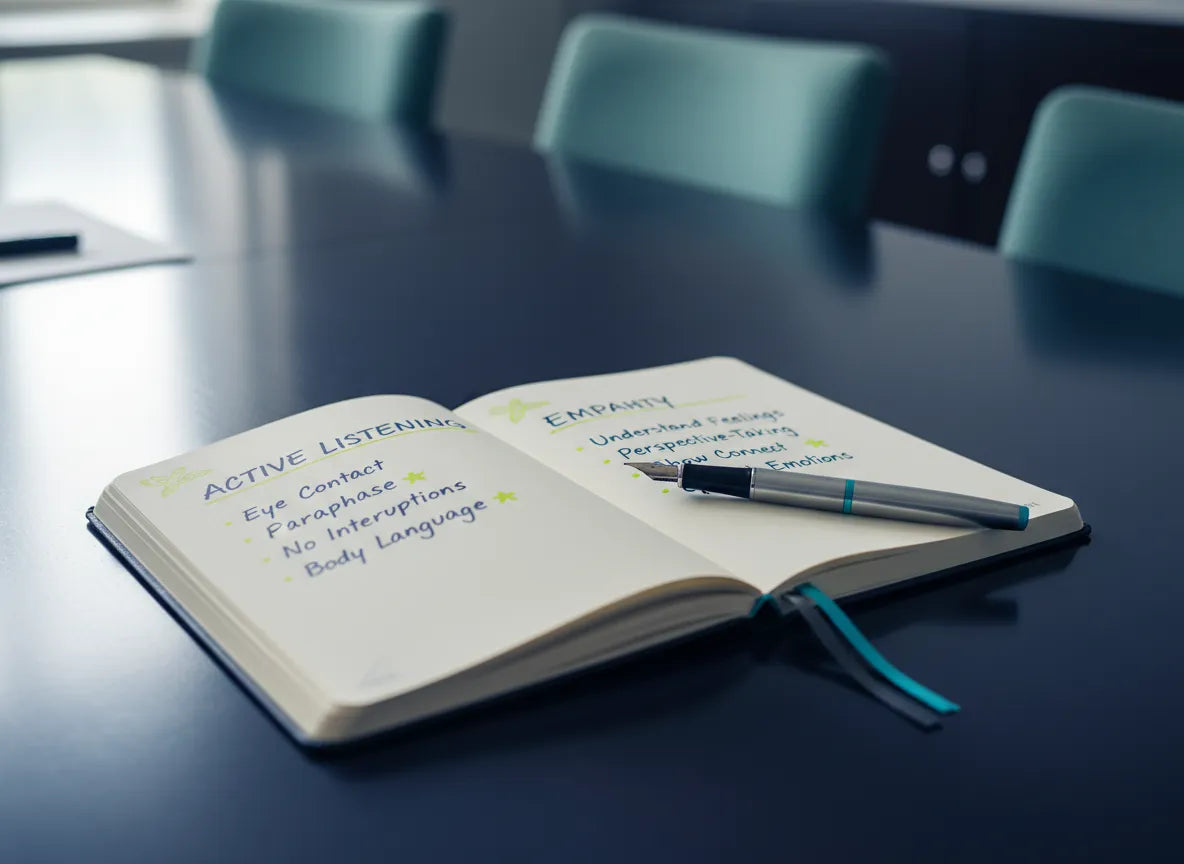 ACTIVE LISTENING
Eye Contact
Paraphase
No Interuptions
Body Language
EMPAHTY
Understand Feelings
Perspective-Taking
Show Connect
Emotions